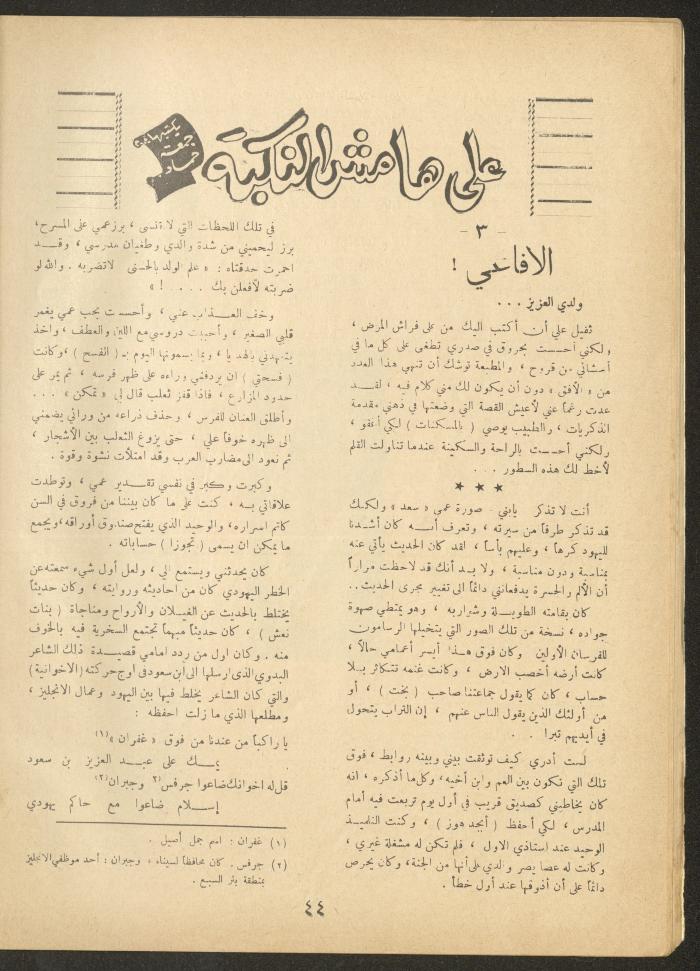 على هامش النكبة
يكتبها:
جمعة
حماد
- ٣ -
الافاعي !
ولدي العزيز ...
ثقيل علي أن أكتب اليك من على فراش المرض ،
ولكني أحسست بحروق في صدري تطغى على كل ما في
أمشائي من قروح ، والمطبعة توشك أن تنهي هذا العدد
من « الأفق » دون أن يكون لك مني كلام فيه ، لقد
عدت رغماً عني لأعيش القصة التي وضعتها في ذهني مقدمة
الذكريات ، والطبيب يوصي ( بالمسكنات ) لكي أغفو ،
ولكني أحسست بالراحة والسكينة عندما تناولت القلم
لأخط لك هذه السطور ...
★ ★ ★
أنت لا تذكر يابني صورة عمي « سعد » ولكنك
قد تذكر طرفاً من سيرته ، وتعرف أنه كان أشدنا
لليهود كرهاً ، وعليهم بأساً ، لقد كان الحديث يأتي عنه
بمناسبة ودون مناسبة ، ولا بد أنك قد لاحظت مراراً
أن الألم والحسرة يدفعانني دائماً الى تغيير مجرى الحديث ..
كان بقامته الطويلة وشواربه ، وهو يمتطي صهوة
جواده ، نسخة من تلك الصور التي يتخيلها الرسامون
للفرسان الأولين وكان فوق هذا أيسر أعمامي حالاً ،
كانت أرضه أخصب الارض ، وكانت غنمه تتكاثر بلا
حساب ، كان كما يقول جماعتنا صاحب ( بخت ) ، أو
من أولئك الذين يقول الناس عنهم ، إن التراب يتحول
في أيديهم تبرا . .
لست أدري كيف توثقت بيني وبينه روابط ، فوق
تلك التي تكون بين العم وابن أخيه، وكل ما أذكره ، انه
كان يخاطبني كصديق قريب في أول يوم تربعت فيه أمام
المدرس ، لكي أحفظ ( أبجد هوز ) ، وكنت التلميذ
الوحيد عند استاذي الاول ، فلم تكن له مشغلة غيري ،
وكانت له عصا يصر والدي على أنها من الجنة، وكان يحرص
دائماً على أن أذوقها عند أول خطأ .
في تلك اللحظات التي لا تنسى ، برز عمي على المسرح،
برز ليحميني من شدة والدي وطغيان مدرسي ، وقد
احمرت حدقتاه : « علم الولد بالحسنى لا تضربه . والله لو
ضربته لأفعلن بك .... ! »
وخف العذاب عني ، وأحسست بحب عمي يغمر
قلبي الصغير ، وأحببت دروسي مع اللين والعطف ، وأخذ
يتعهدني بالهدايا ، وبما يسمونها اليوم بـ ( الفسح ) ، وكانت
( فسحتي ) ان يردفني وراءه على ظهر فرسه ، ثم يمر على
حدود المزارع ، فاذا قفز ثعلب قال لي « تمكن » ...
وأطلق العنان للفرس ، وحذف ذراعه من ورائي يضمني
الى ظهره خوفاً علي ، حتى يزوغ الثعلب بين الأشجار ،
ثم نعود الى مضارب العرب وقد امتلأت نشوة وقوة .
وكبرت وكبر في نفسي تقدير عمي ، وتوطدت
علاقاتي به ، كنت على ما كان بيننا من فروق في السن
كاتم اسراره، والوحيد الذي يفتح صندوق أوراقه، ويجمع
ما يمكن ان يسمى ( تجوزا ) حساباته .
كان يحدثني ويستمع الي ، ولعل أول شيء سمعته عن
الخطر اليهودي كان من أحاديثه وروايته ، وكان حديثاً
يختلط بالحديث عن الغيلان والأرواح ومناجاة ( بنات
نعش ) ، كان حديثاً مبهماً تجتمع السخرية فيه بالخوف
منه . وكان اول من ردد امامي قصيدة ذلك الشاعر
البدوي الذي ارسلها الى ابن سعود في أوج حركته ( الاخوانية )
والتي كان الشاعر يخلط فيها بين اليهود وعمال الانجليز ،
ومطلعها الذي ما زلت احفظه :
يا راكباً من عندنا من فوق « غفران » (١)
يمك على عبد العزيز بن سعود
قل له اخوانك ضاعوا جرفس (٢) وجبران (٢)
إسلام ضاعوا مع حاكم يهودي
(١) غفران : اسم جمل أصيل .
(٢) جرفس . كان محافظاً لسيناء ، وجبران : أحد موظفي الانجليز
بمنطقة بئر السبع .
٤٤